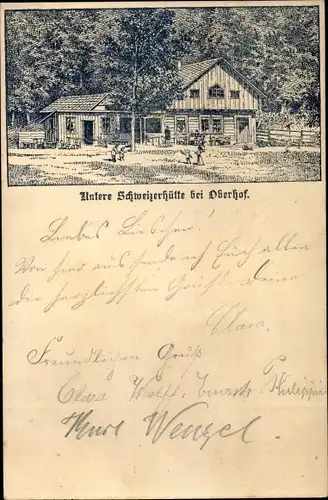 Untere Schweizerhütte bei Oberhof.
Liebes Lieschen!
Von hier aus sende ich Euch allen
die herzlichsten Grüße. Deine
Clara.
Freundlichen Gruß
Clara Wolff. Ernst Philippi
Kurt Wenzel.